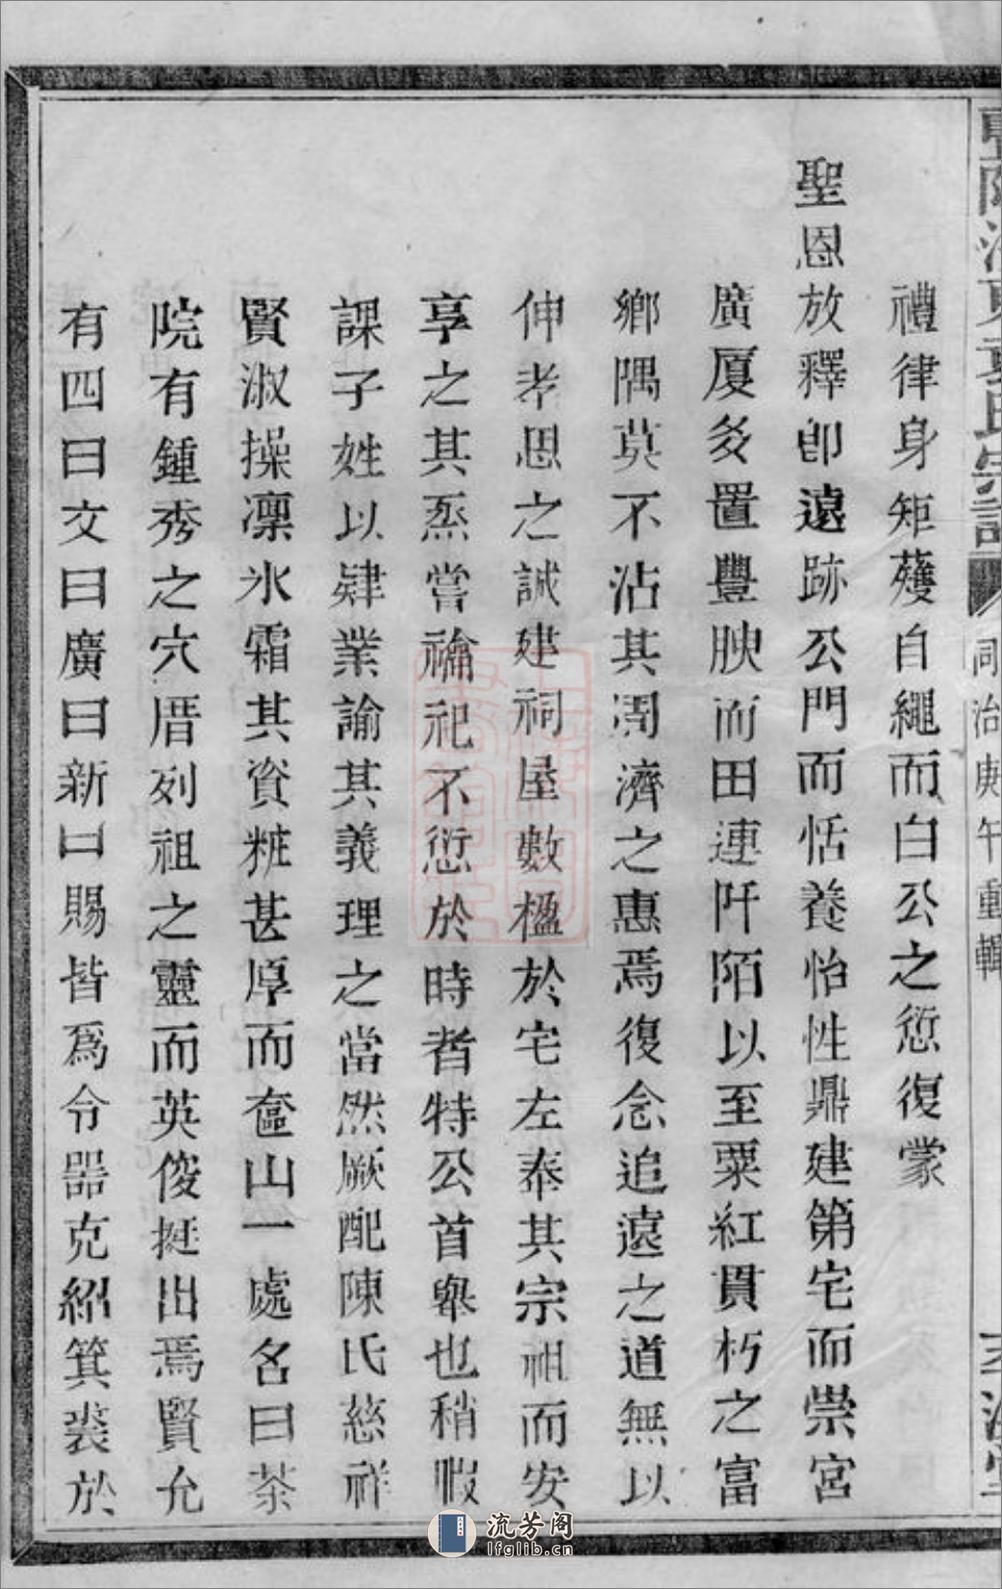 禮律身矩蒦自繩而白公之愆復蒙
聖恩放釋卽遠跡公門而恬養怡性鼎建第宅而崇宮
廣厦多置豐腴而田連阡陌以至粟紅貫朽之富
鄉隅莫不沾其周濟之惠焉復念追遠之道無以
伸孝思之誠建祠屋數楹於宅左奉其宗祖而安
享之其烝嘗禴祀不愆於時者特公首舉也稍暇
課子姓以肄業諭其義理之當然厥配陳氏慈祥
賢淑操凜氷霜其資粧甚厚而奩山一處名曰茶
院有鍾秀之穴厝列祖之靈而英俊挺出焉賢允
有四曰文曰廣曰新曰賜皆爲令器克紹箕裘於
同治庚午重輯
流芳阁
lfglib.cn